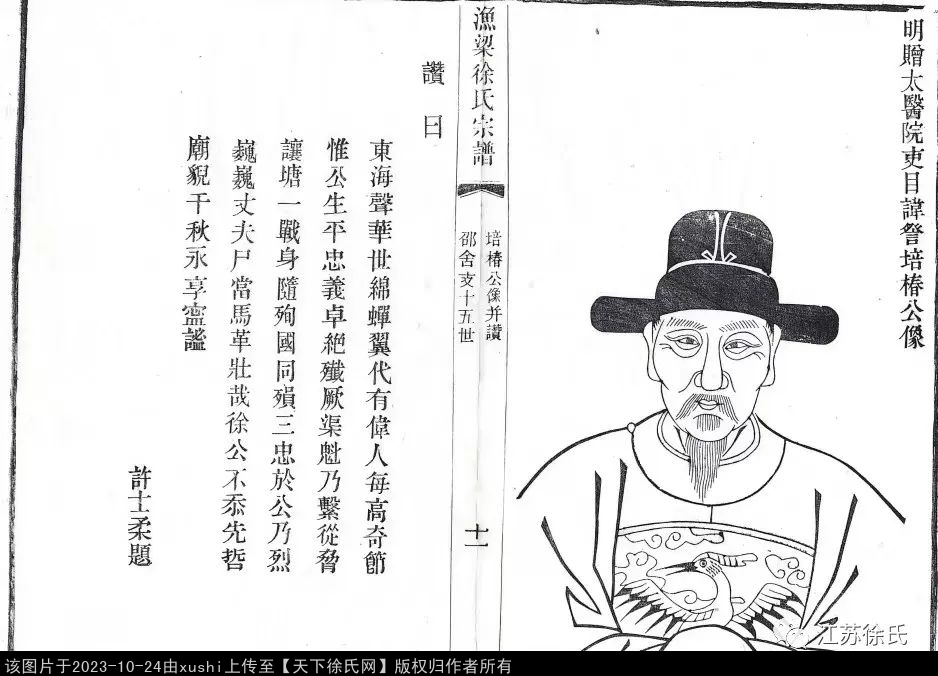 明贈太醫院吏目諱詧培椿公像
漁梁徐氏宗譜
培椿公像并讚
邵舍支十五世
十一
讚曰
東海聲華世綿蟬翼代有偉人每高奇節
惟公生平忠義卓絶殲厥渠魁乃繫從脅
讓塘一戰身隨殉國同殞三忠於公乃烈
巍巍丈夫尸當馬革壯哉徐公不忝先哲
廟貌千秋永享寧謐
許士柔題
江苏徐氏
该图片于2023-10-24由xushi上传至【天下徐氏网】版权归作者所有